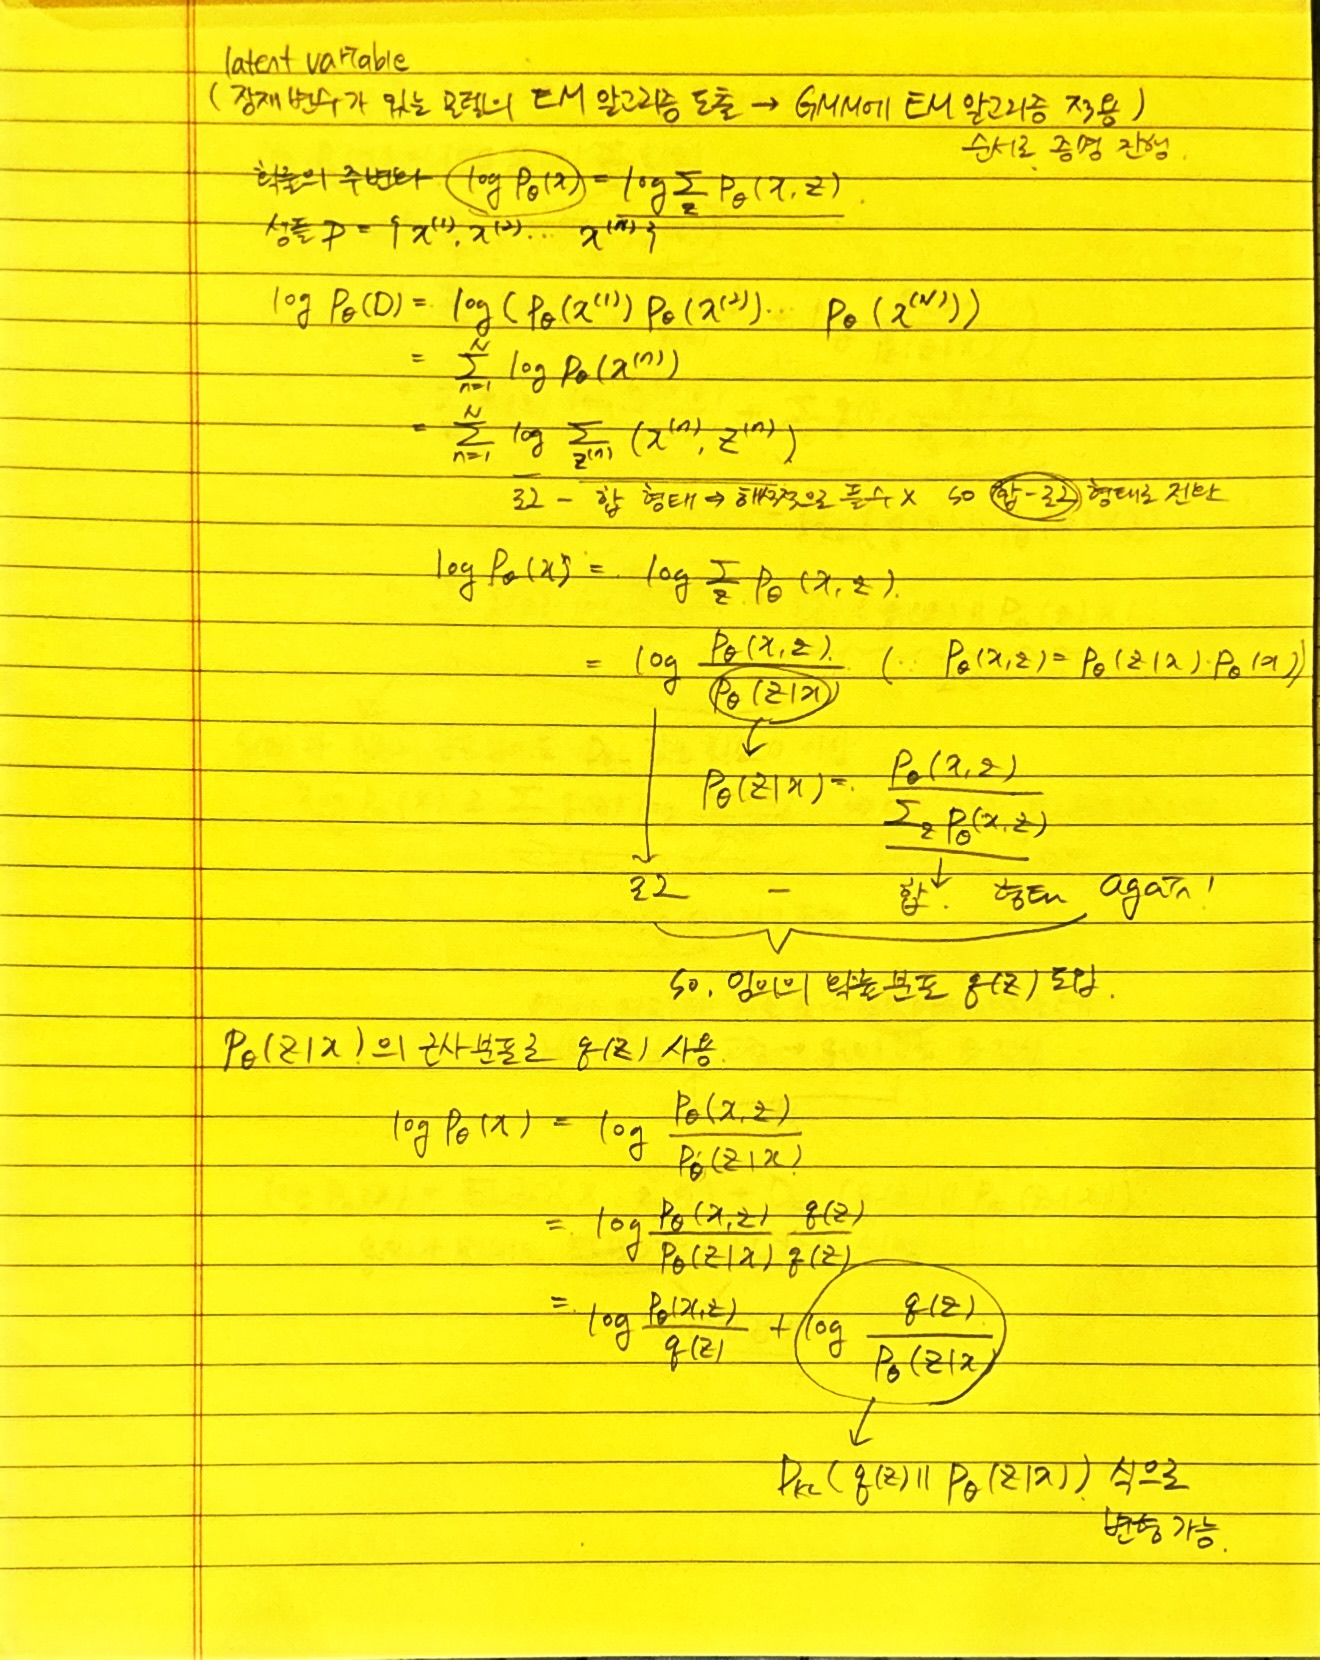 latent variable
(잠재변수가 있는 모델의 EM 알고리즘 도출 → GMM에 EM 알고리즘 적용)
순서로 증명 진행.
확률의 주변화 log Pθ(x) = log Σz Pθ(x, z)
샘플 D = {x⁽¹⁾, x⁽²⁾ ... x⁽ᴺ⁾}
log Pθ(D) = log(Pθ(x⁽¹⁾) Pθ(x⁽²⁾)... Pθ(x⁽ᴺ⁾))
= Σₙ₌₁ᴺ log Pθ(x⁽ⁿ⁾)
= Σₙ₌₁ᴺ log Σz⁽ⁿ⁾ (x⁽ⁿ⁾, z⁽ⁿ⁾)
로그 - 합 형태 → 해석적으로 풀수 x so 합-로그 형태로 전환
log Pθ(x) = log Σz Pθ(x, z)
= log Pθ(x, z) / Pθ(z|x) (∵ Pθ(x,z) = Pθ(z|x)·Pθ(x))
↓ ↙
Pθ(z|x) = Pθ(x, z) / Σz Pθ(x, z)
로그 - 합 형태 again!
so, 임의의 확률분포 q(z) 도입.
Pθ(z|x)의 근사분포로 q(z) 사용.
log Pθ(x) = log Pθ(x, z) / Pθ(z|x)
= log Pθ(x,z) / Pθ(z|x) q(z) / q(z)
= log Pθ(x,z) / q(z) + log q(z) / Pθ(z|x)
↓
D_KL(q(z) || Pθ(z|x)) 식으로
변형 가능.